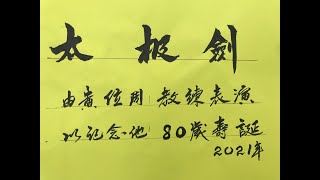 太极劍
由黄位周教練表演
以紀念他80歲壽誕
2021年